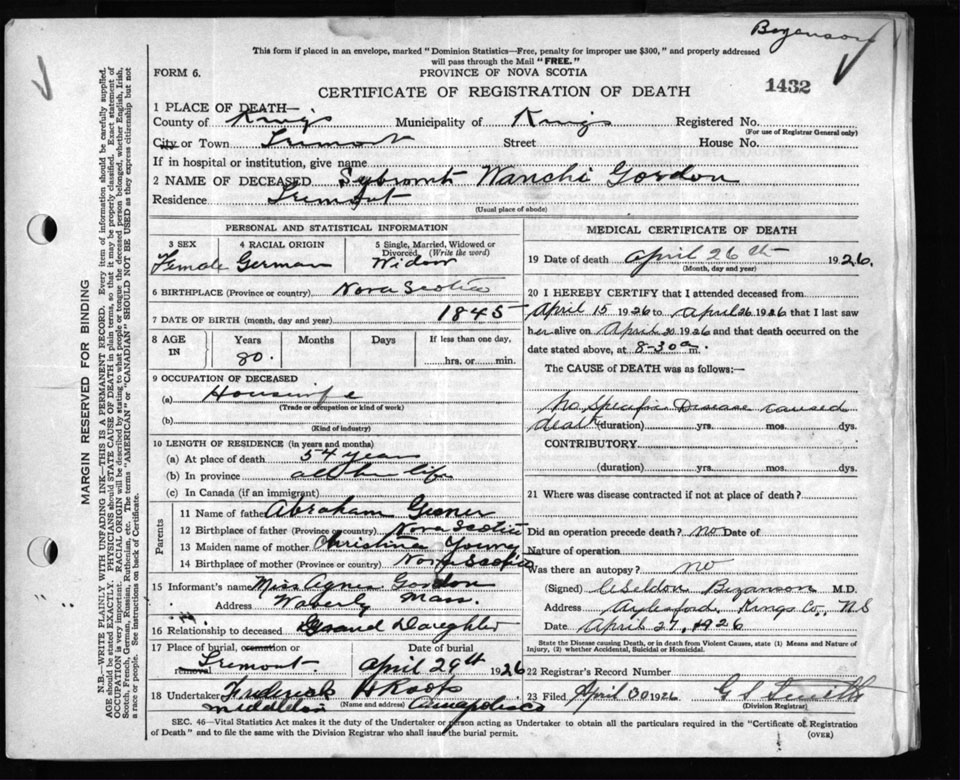 Bezanson
This form if placed in an envelope, marked "Dominion Statistics—Free, penalty for improper use $300," and properly addressed
will pass through the Mail "FREE."
FORM 6.
PROVINCE OF NOVA SCOTIA
CERTIFICATE OF REGISTRATION OF DEATH
1432
1 PLACE OF DEATH—
County of Kings Municipality of Kings Registered No.
(For use of Registrar General only)
City or Town Tremont Street House No.
If in hospital or institution, give name
2 NAME OF DECEASED Wanchi Gordon
Residence Tremont
(Usual place of abode)
PERSONAL AND STATISTICAL INFORMATION
3 SEX 4 RACIAL ORIGIN 5 Single, Married, Widowed or Divorced (Write the word)
Female German Widow
6 BIRTHPLACE (Province or country) Nova Scotia
7 DATE OF BIRTH (month, day and year) 1845
8 AGE IN Years Months Days If less than one day,
80. hrs. or min.
9 OCCUPATION OF DECEASED
(a) Housewife
(Trade or occupation or kind of work)
(b)
(Kind of industry)
10 LENGTH OF RESIDENCE (in years and months)
(a) At place of death 54 years
(b) In province all her life
(c) In Canada (if an immigrant)
Parents
11 Name of father Abraham Gesner
12 Birthplace of father (Province or country) Nova Scotia
13 Maiden name of mother Christina Young
14 Birthplace of mother (Province or country) Nova Scotia
15 Informant's name Miss Agnes Gordon
Address Waverly Mass.
16 Relationship to deceased Grand Daughter
17 Place of burial, cremation or removal Date of burial
Tremont April 29th 1926
18 Undertaker Frederick Roop
Middleton (Name and address) Annapolis Co
MEDICAL CERTIFICATE OF DEATH
19 Date of death April 26th 1926.
(Month, day and year)
20 I HEREBY CERTIFY that I attended deceased from
April 15 1926 to April 26 1926 that I last saw
her alive on April 20 1926 and that death occurred on
date stated above, at 8-30 a m.
The CAUSE of DEATH was as follows:—
No Specific Disease caused
death (duration) yrs. mos. dys.
CONTRIBUTORY
(duration) yrs. mos. dys.
21 Where was disease contracted if not at place of death?
Did an operation precede death? no Date of
Nature of operation
Was there an autopsy? no
(Signed) Seldon Bezanson M.D.
Address Aylesford, Kings Co., NS
Date April 27, 1926
State the Disease causing Death, or in death from Violent Causes, state (1) Means and Nature of
Injury, (2) whether Accidental, Suicidal or Homicidal.
22 Registrar's Record Number
23 Filed April 30 1926 G S Smith
(Division Registrar)
SEC. 46—Vital Statistics Act makes it the duty of the Undertaker or person acting as Undertaker to obtain all the particulars required in the "Certificate of Registration
of Death" and to file the same with the Division Registrar who shall issue the burial permit.
(OVER)
MARGIN RESERVED FOR BINDING
N.B.—WRITE PLAINLY WITH UNFADING INK—THIS IS A PERMANENT RECORD. Every item of information should be carefully supplied.
AGE should be stated EXACTLY. PHYSICIANS should STATE CAUSE OF DEATH in plain terms, so that it may be properly classified. Exact statement of
OCCUPATION is very important. RACIAL ORIGIN will be described by stating to what people or tongue the deceased person belonged, whether English, Irish,
Scotch, French, German, Russian, Ruthenian, etc. The terms "AMERICAN" or "CANADIAN" SHOULD NOT BE USED as they express citizenship but not
a race or people. See instructions on back of Certificate.